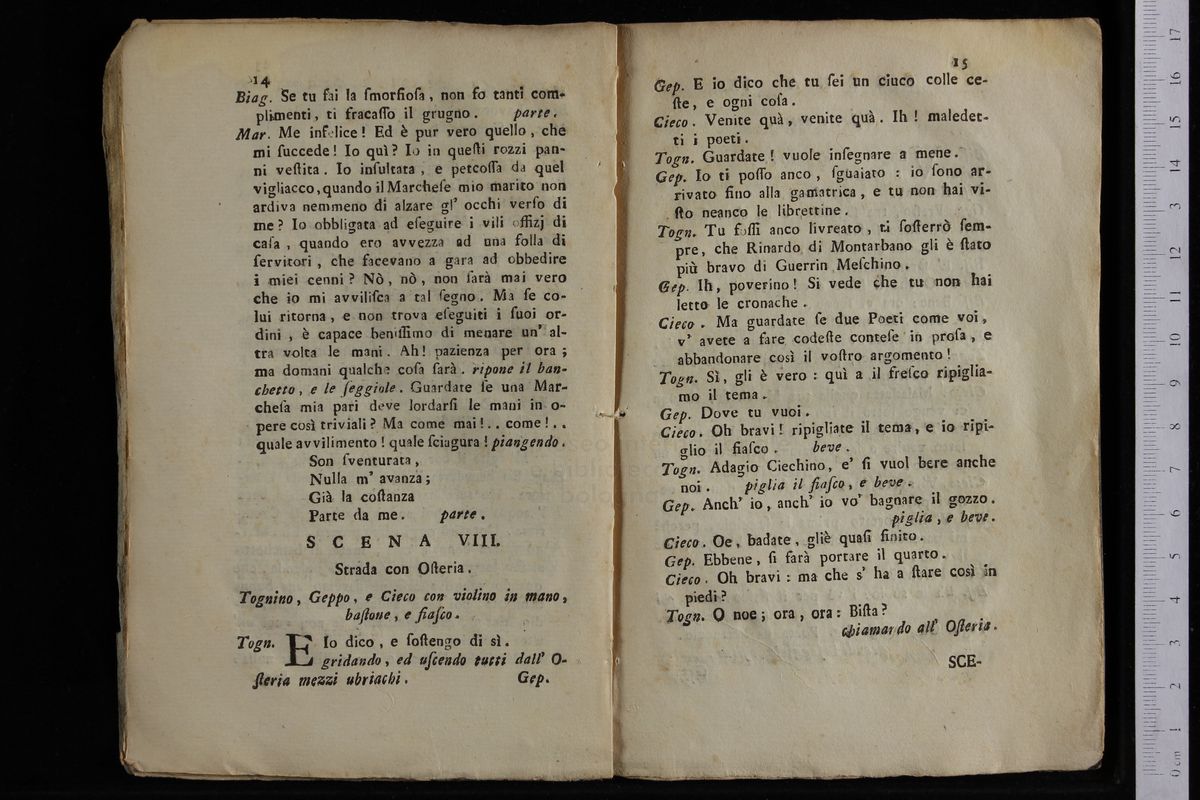 14
Biag. Se tu fai la ſmorfioſa, non fo tanti com-
plimenti, ti fracaſſo il grugno. parte.
Mar. Me infelice! Ed è pur vero quello, che
mi ſuccede! Io quì? Io in queſti rozzi pan-
ni veſtita. Io inſultata, e percoſſa da quel
vigliacco, quando il Marcheſe mio marito non
ardiva nemmeno di alzare gl' occhi verſo di
me? Io obbligata ad eſeguire i vili offizj di
caſa, quando ero avvezza ad una folla di
ſervitori, che facevano a gara ad obbedire
i miei cenni? Nò, nò, non ſarà mai vero
che io mi avviliſca a tal ſegno. Ma ſe co-
lui ritorna, e non trova eſeguiti i ſuoi or-
dini, è capace beniſſimo di menare un' al-
tra volta le mani. Ah! pazienza per ora;
ma domani qualche coſa ſarà. ripone il ban-
chetto, e le ſeggiole. Guardate ſe una Mar-
cheſa mia pari deve lordarſi le mani in o-
pere così triviali? Ma come mai!.. come!..
quale avvilimento! quale ſciagura! piangendo.
Son ſventurata,
Nulla m' avanza;
Già la coſtanza
Parte da me. parte.
SCENA VIII.
Strada con Oſteria.
Tognino, Geppo, e Cieco con violino in mano,
baſtone, e fiaſco.
Togn. E Io dico, e ſoſtengo di sì.
gridando, ed uſcendo tutti dall' O-
ſteria mezzi ubriachi. Gep.
15
Gep. E io dico che tu ſei un ciuco colle ce-
ſte, e ogni coſa.
Cieco. Venite quà, venite quà. Ih! maledet-
ti i poeti.
Togn. Guardate! vuole inſegnare a mene.
Gep. Io ti poſſo anco, ſguaiato: io ſono ar-
rivato fino alla gamatrica, e tu non hai vi-
ſto neanco le librettine.
Togn. Tu foſſi anco livreato, ti ſoſterrò ſem-
pre, che Rinardo di Montarbano gli è ſtato
più bravo di Guerrin Meſchino.
Gep. Ih, poverino! Si vede che tu non hai
letto le cronache.
Cieco. Ma guardate ſe due Poeti come voi,
v' avete a fare codeſte conteſe in proſa, e
abbandonare così il voſtro argomento!
Togn. Sì, gli è vero: quì a il freſco ripiglia-
mo il tema.
Gep. Dove tu vuoi.
Cieco. Oh bravi! ripigliate il tema, e io ripi-
glio il fiaſco. beve.
Togn. Adagio Ciechino, e' ſi vuol bere anche
noi. piglia il fiaſco, e beve.
Gep. Anch' io, anch' io vo' bagnare il gozzo.
piglia, e beve.
Cieco. Oe, badate, gliè quaſi finito.
Gep. Ebbene, ſi farà portare il quarto.
Cieco. Oh bravi: ma che s' ha a ſtare così in
piedi?
Togn. O noe; ora, ora: Biſta?
chiamando all' Oſteria.
SCE-